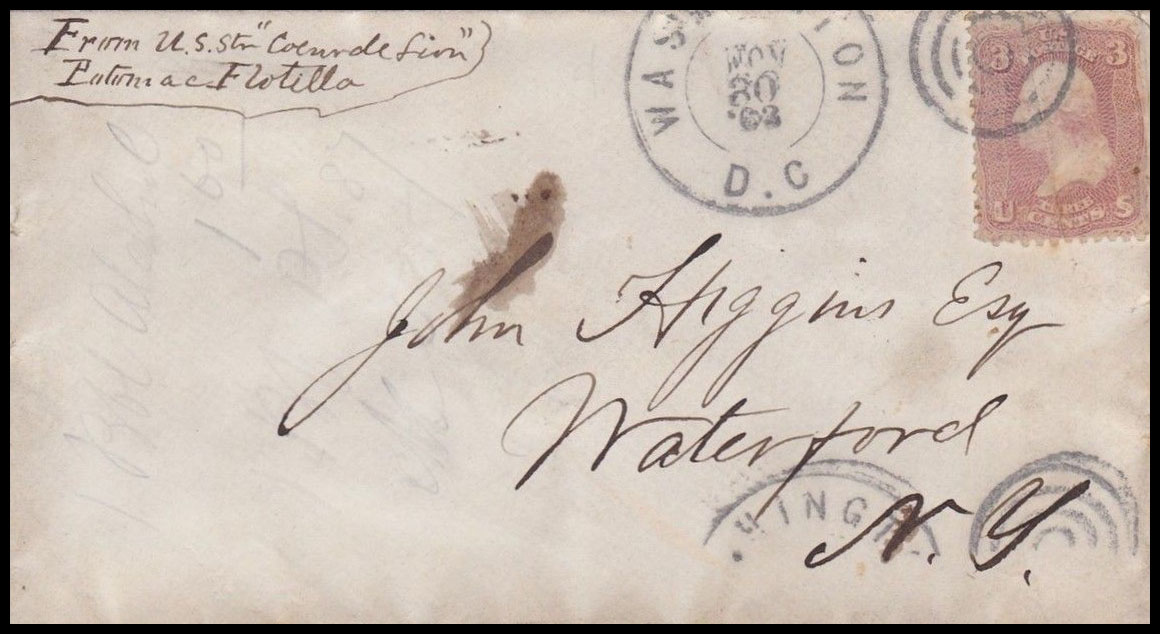 From U.S. Str "Coeur de Lion"
Potomac Flotilla
WASHINGTON
NOV
30
'63
D.C
3 3
U S
THREE
CENTS
John Higgins Esq
Waterford
N.Y.